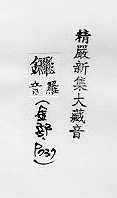 精嚴新集大藏音
鑼
羅
音
(金部,P037)